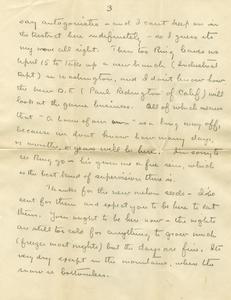 3
say antagonistes - and I can't keep on in
the District here indefinitely - so I guess its
my move all right. Then too Ring leaves us
April 15 to take up a new branch (Industrial
Dept) in Washington, and I don't know how
the new D.F. (Paul Redington of Calif) will
look at the game business. All of which means
that "a home of our own" is a long way off,
because we don't know how many days,
or months, or years we'll be here. I'm sorry to
see Ring go - his given me a free rein, which
is the best kind of supervision there is.
Thanks for the new melon seeds - I also
sent for them and expect you to be here to eat
them. You ought to be here now - the nights
are still too cold for anything to grow much
(freeze most nights) but the days are fine. Its
very dry except in the mountains, where the
snow is bottomless.